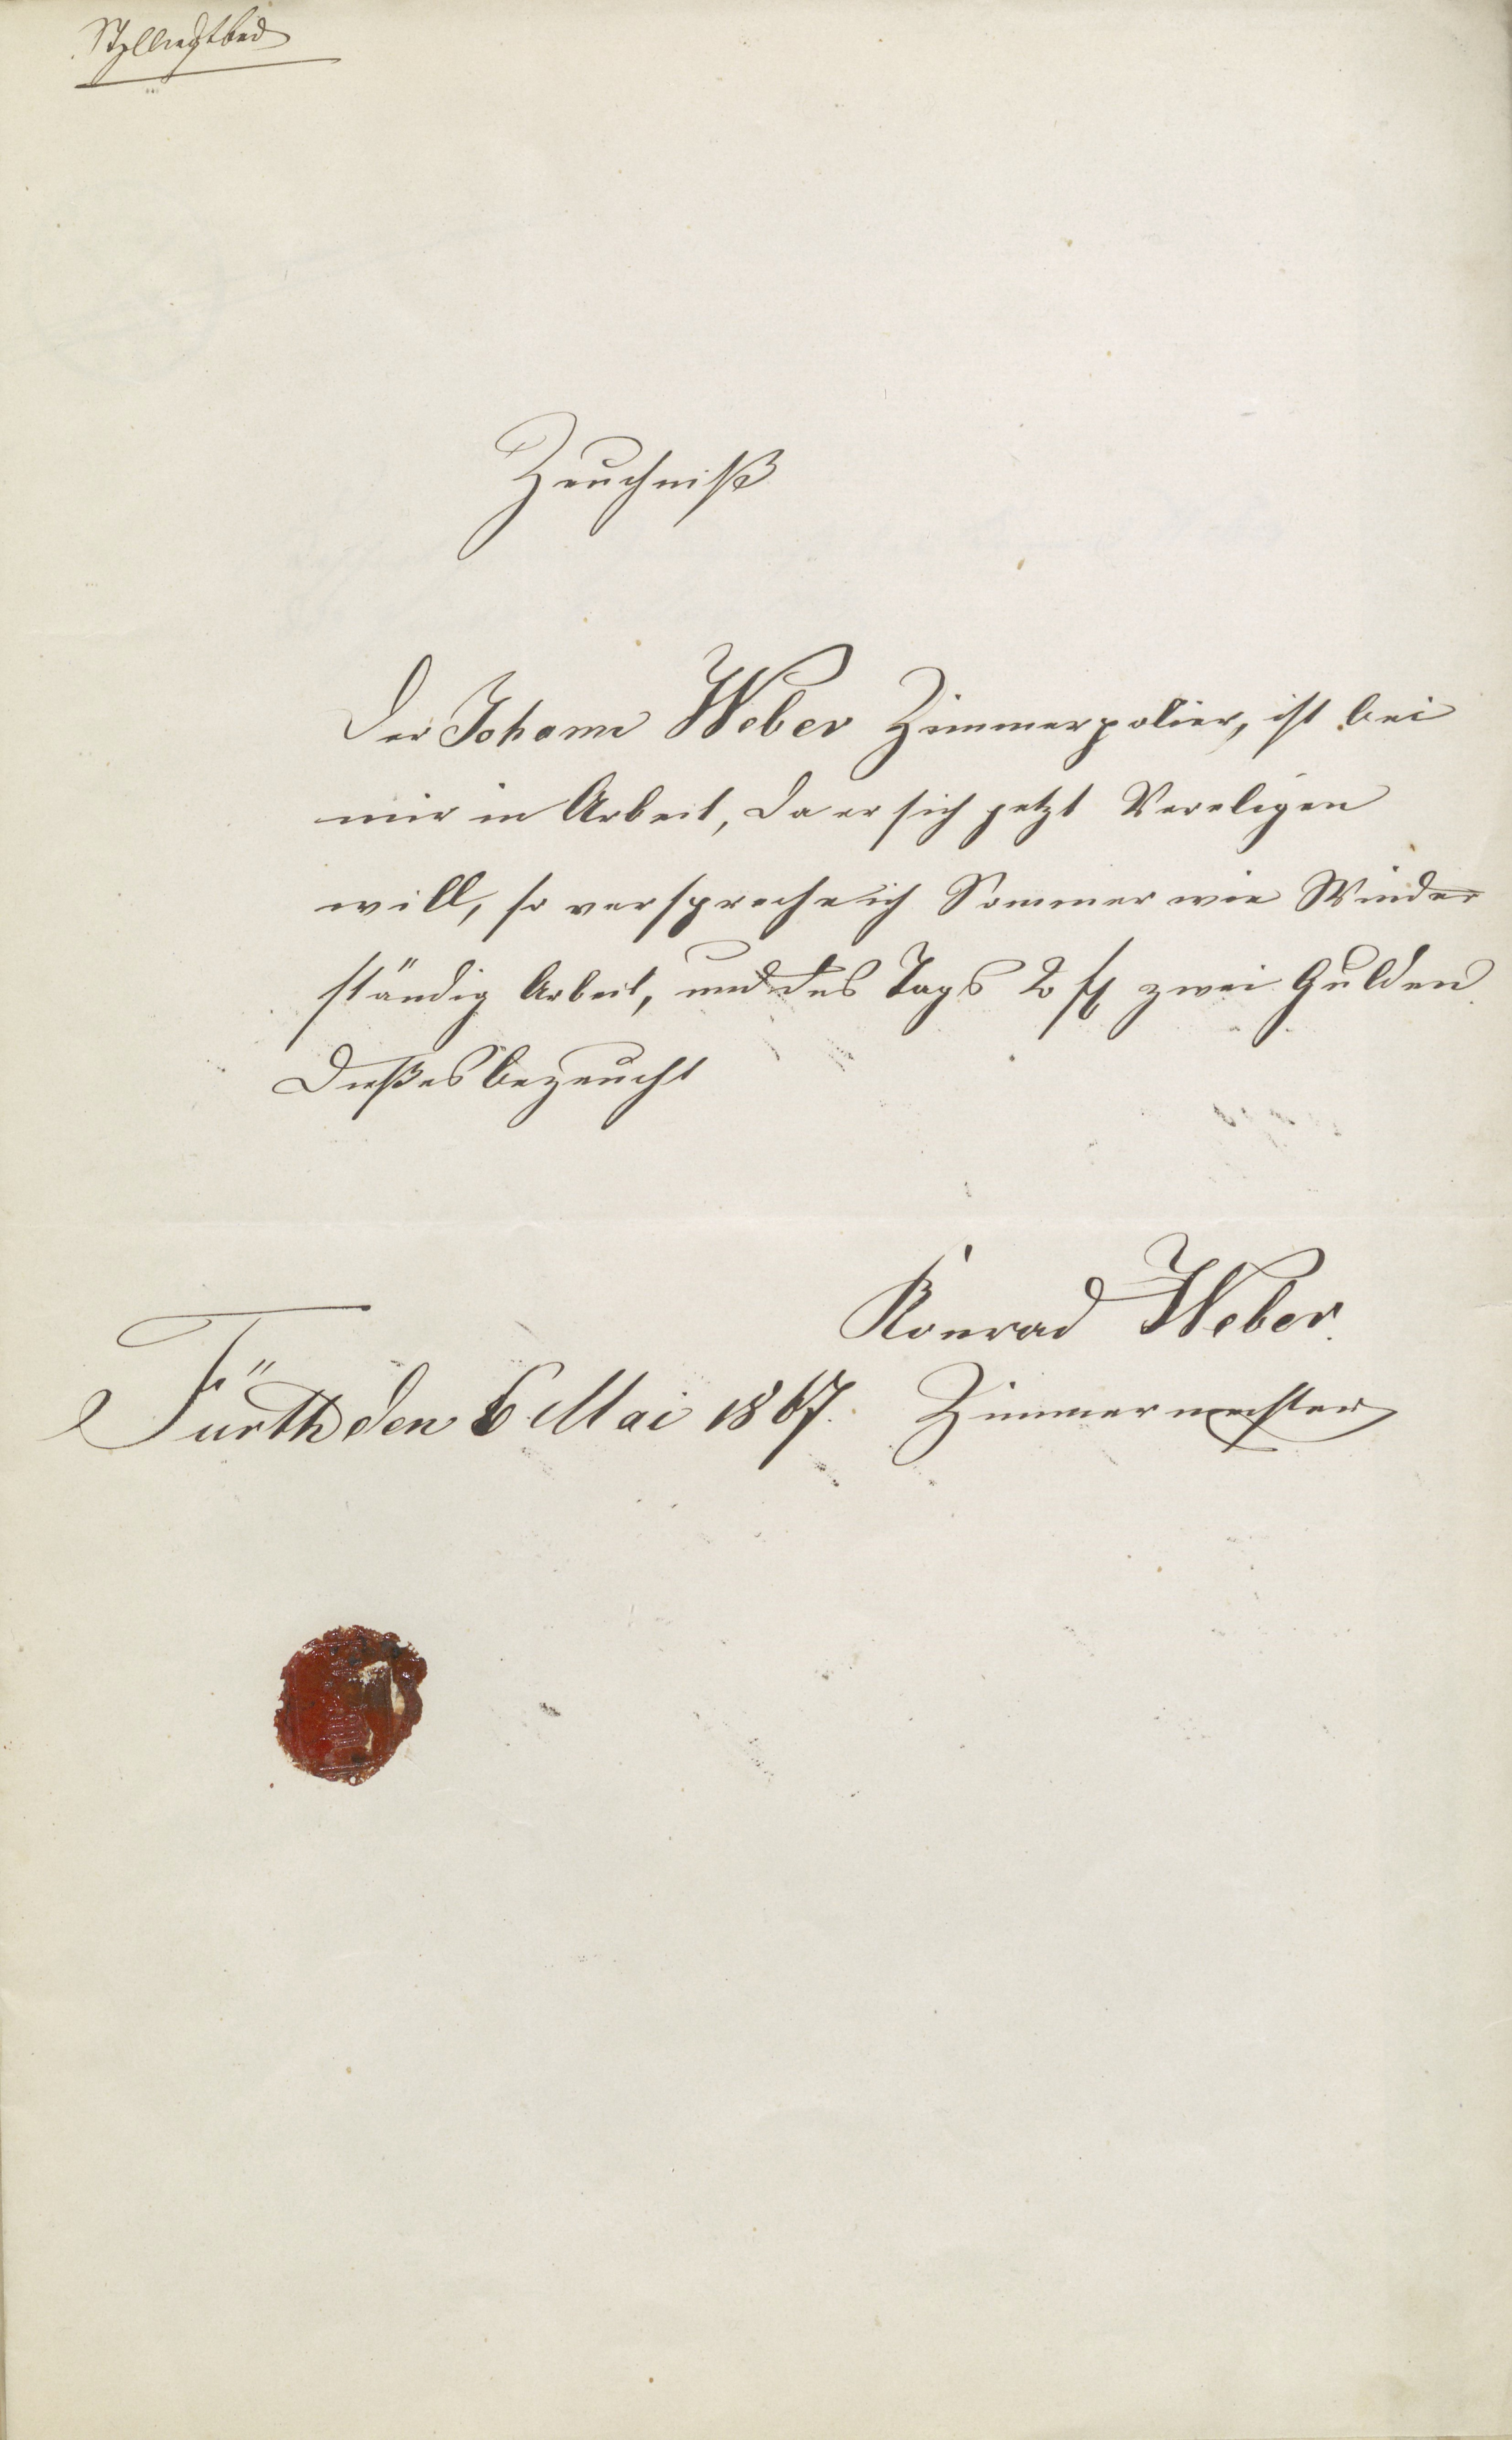 Zeuchniß
Der Johann Weber Zimmerpolier, ist bei
mir in Arbeit, da er sich jetzt Vereligen
will, so verspreche ich Sommer wie Winder
ständig Arbeit, und des Tags 2 fl zwei Gulden
Dießes bezeucht
Konrad Weber.
Fürth den 6 Mai 1867. Zimmermeister